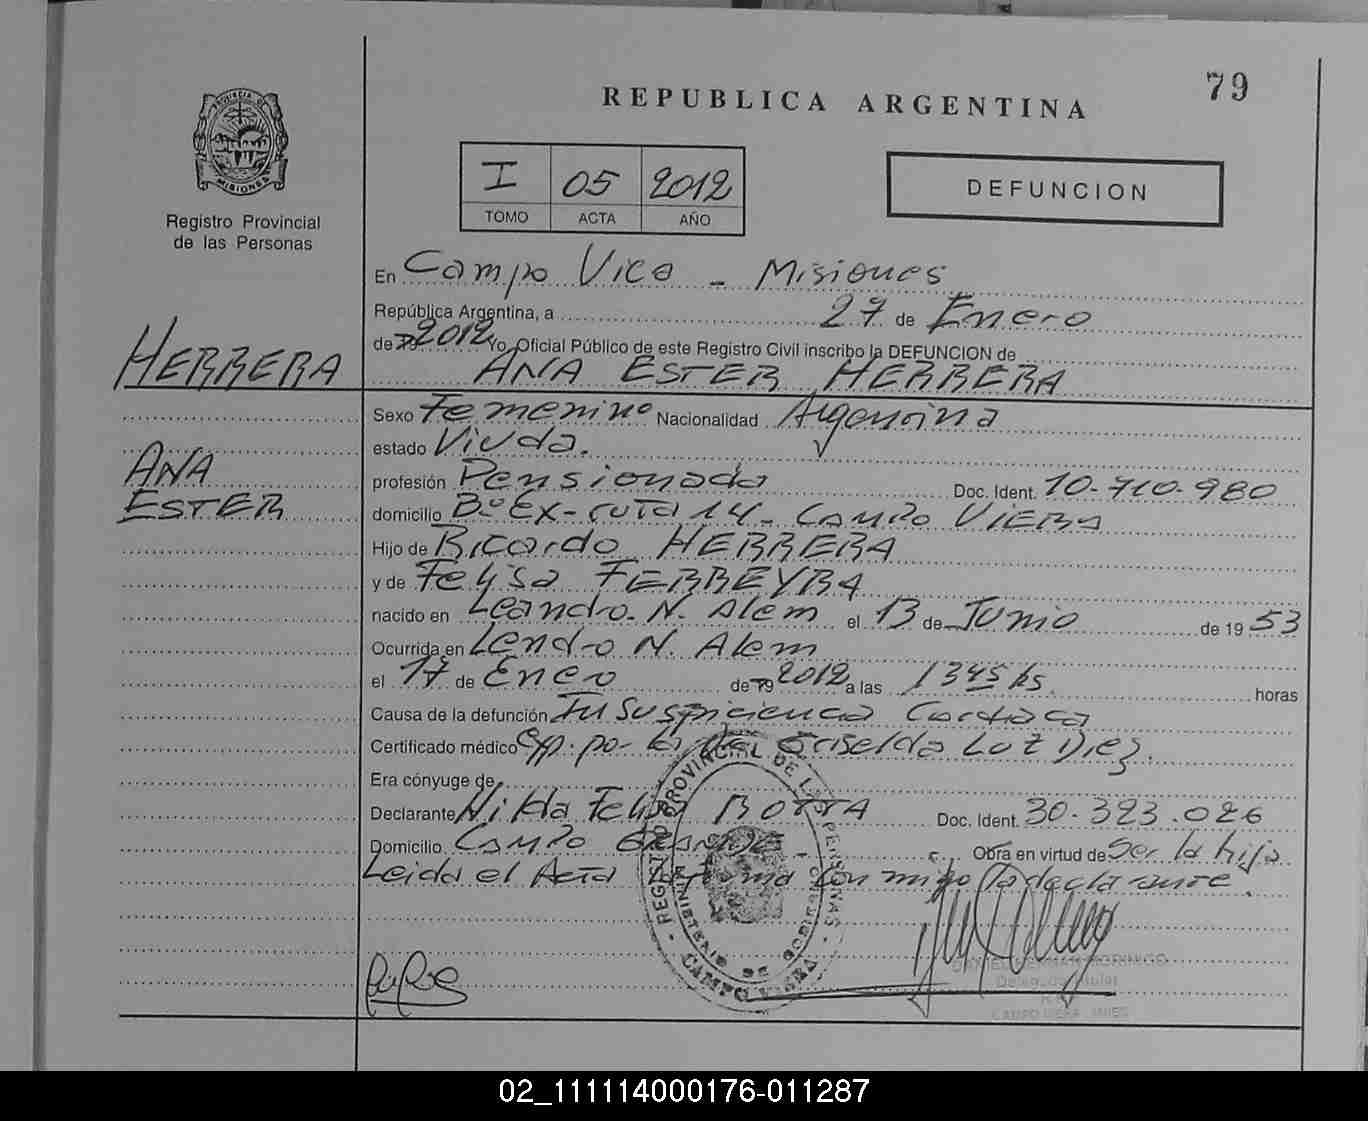 79
REPUBLICA ARGENTINA
PROVINCIA DE
MISIONES
Registro Provincial
de las Personas
I 05 2012
TOMO ACTA AÑO
DEFUNCION
En Campo Viera - Misiones
República Argentina, a 27 de Enero
de 19 2012 Yo, Oficial Público de este Registro Civil inscribo la DEFUNCION de
HERRERA
ANA ESTER HERRERA
Sexo Femenino Nacionalidad Argentina
estado Viuda.
ANA
ESTER
profesión Pensionada Doc. Ident. 10-710-980
domicilio Bº Ex-ruta 14 - CAMPO VIERA
Hijo de Ricardo HERRERA
y de Felisa FERREYRA
nacido en Leandro. N. Alem el 13 de Junio de 19 53
Ocurrida en Lendro N. Alem
el 17 de Enero de 19 2012 a las 1345 hs. horas
Causa de la defunción Insuspiciencia Cardiaca
Certificado médico exp. por la Griselda Luz Diez.
Era cónyuge de
Declarante Nilda Felisa BOTTA Doc. Ident. 30.323.026
Domicilio CAMPO GRANDE Obra en virtud de Ser la hija
Leida el Acta la firma conmigo la declarante.
REGISTRO PROVINCIAL DE LAS PERSONAS
MINISTERIO DE GOBIERNO
CAMPO VIERA
CAMPO VIERA
02_111114000176-011287